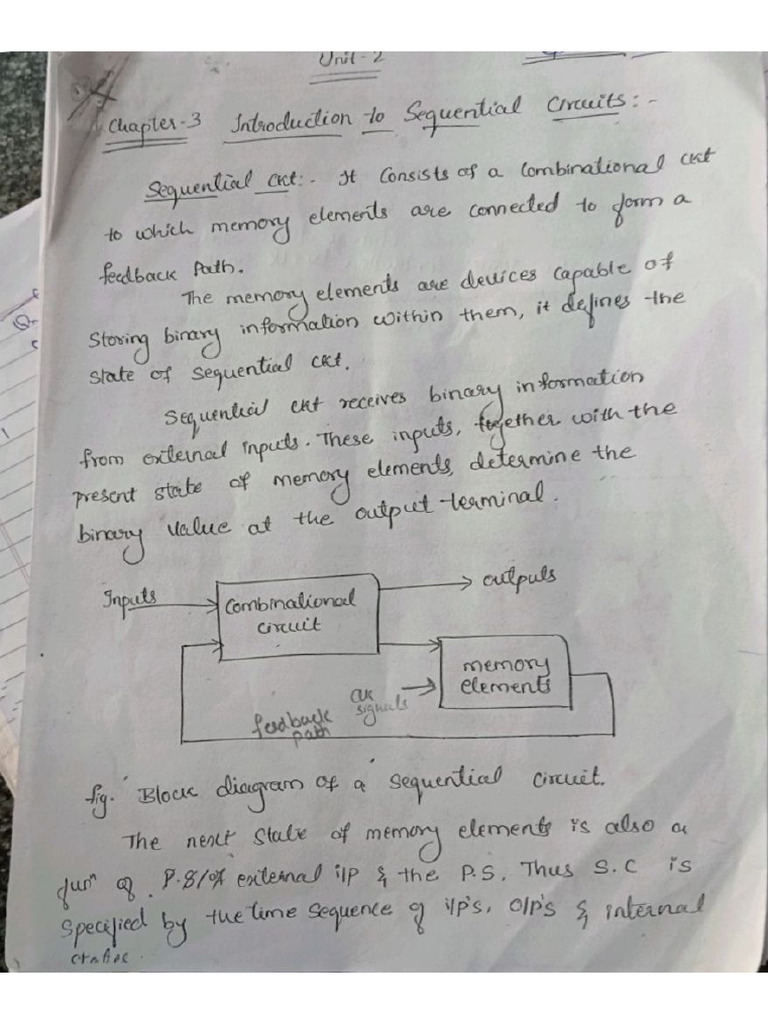 Unit - 2
Chapter-3 Introduction to Sequential Circuits:-
Sequential Ckt:- It consists of a combinational ckt
to which memory elements are connected to form a
feedback Path.
The memory elements are devices capable of
storing binary information within them, it defines the
state of sequential ckt.
Sequential ckt receives binary information
from external inputs. These inputs, together with the
present state of memory elements, determine the
binary value at the output terminal.
Inputs
Combinational
circuit
outputs
memory
elements
clk
signals
feedback
path
fig. Block diagram of a sequential circuit.
The next state of memory elements is also a
funⁿ of external i/p & the P.S. Thus S.C is
specified by the time sequence of i/p's, o/p's & internal
states.